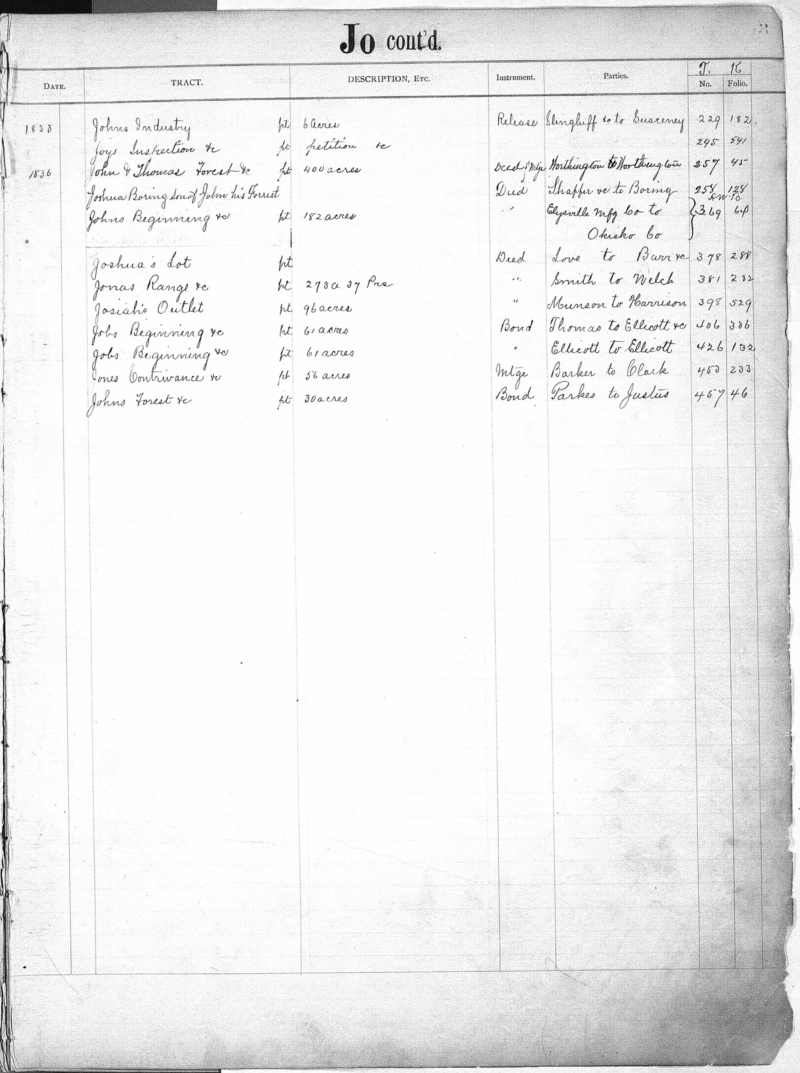 Jo cont'd.
T. K
DATE. TRACT. DESCRIPTION, ETC. Instrument. Parties. No. Folio.
1833 Johns Industry pt 6 acres Release Slingluff &c to Dusceney 229 182.
Joys Inspection &c pt petition &c 245 541
1836 John & Thomas Forest &c pt 400 acres Deed & Mtge Worthington to Worthington 257 45
Joshua Boring son of John his Forrest Deed Shaffer &c to Boring 258 128
Johns Beginning &c pt 182 acres " Elysville Mfg Co to } 369 64
Okisko Co
Joshua's Lot pt Deed Love to Barr &c 378 288
Jonas Range &c pt 273a 37 Prs " Smith to Welch 381 232
Josiah's Outlet pt 96 acres " Munson to Harrison 398 529
Jobs Beginning &c pt 61 acres Bond Thomas to Ellicott &c 406 336
Jobs Beginning &c pt 61 acres " Ellicott to Ellicott 426 132
Jones Contrivance &c pt 56 acres Mtge Barker to Clark 453 233
Johns Forest &c pt 30 acres Bond Parkes to Justus 457 46